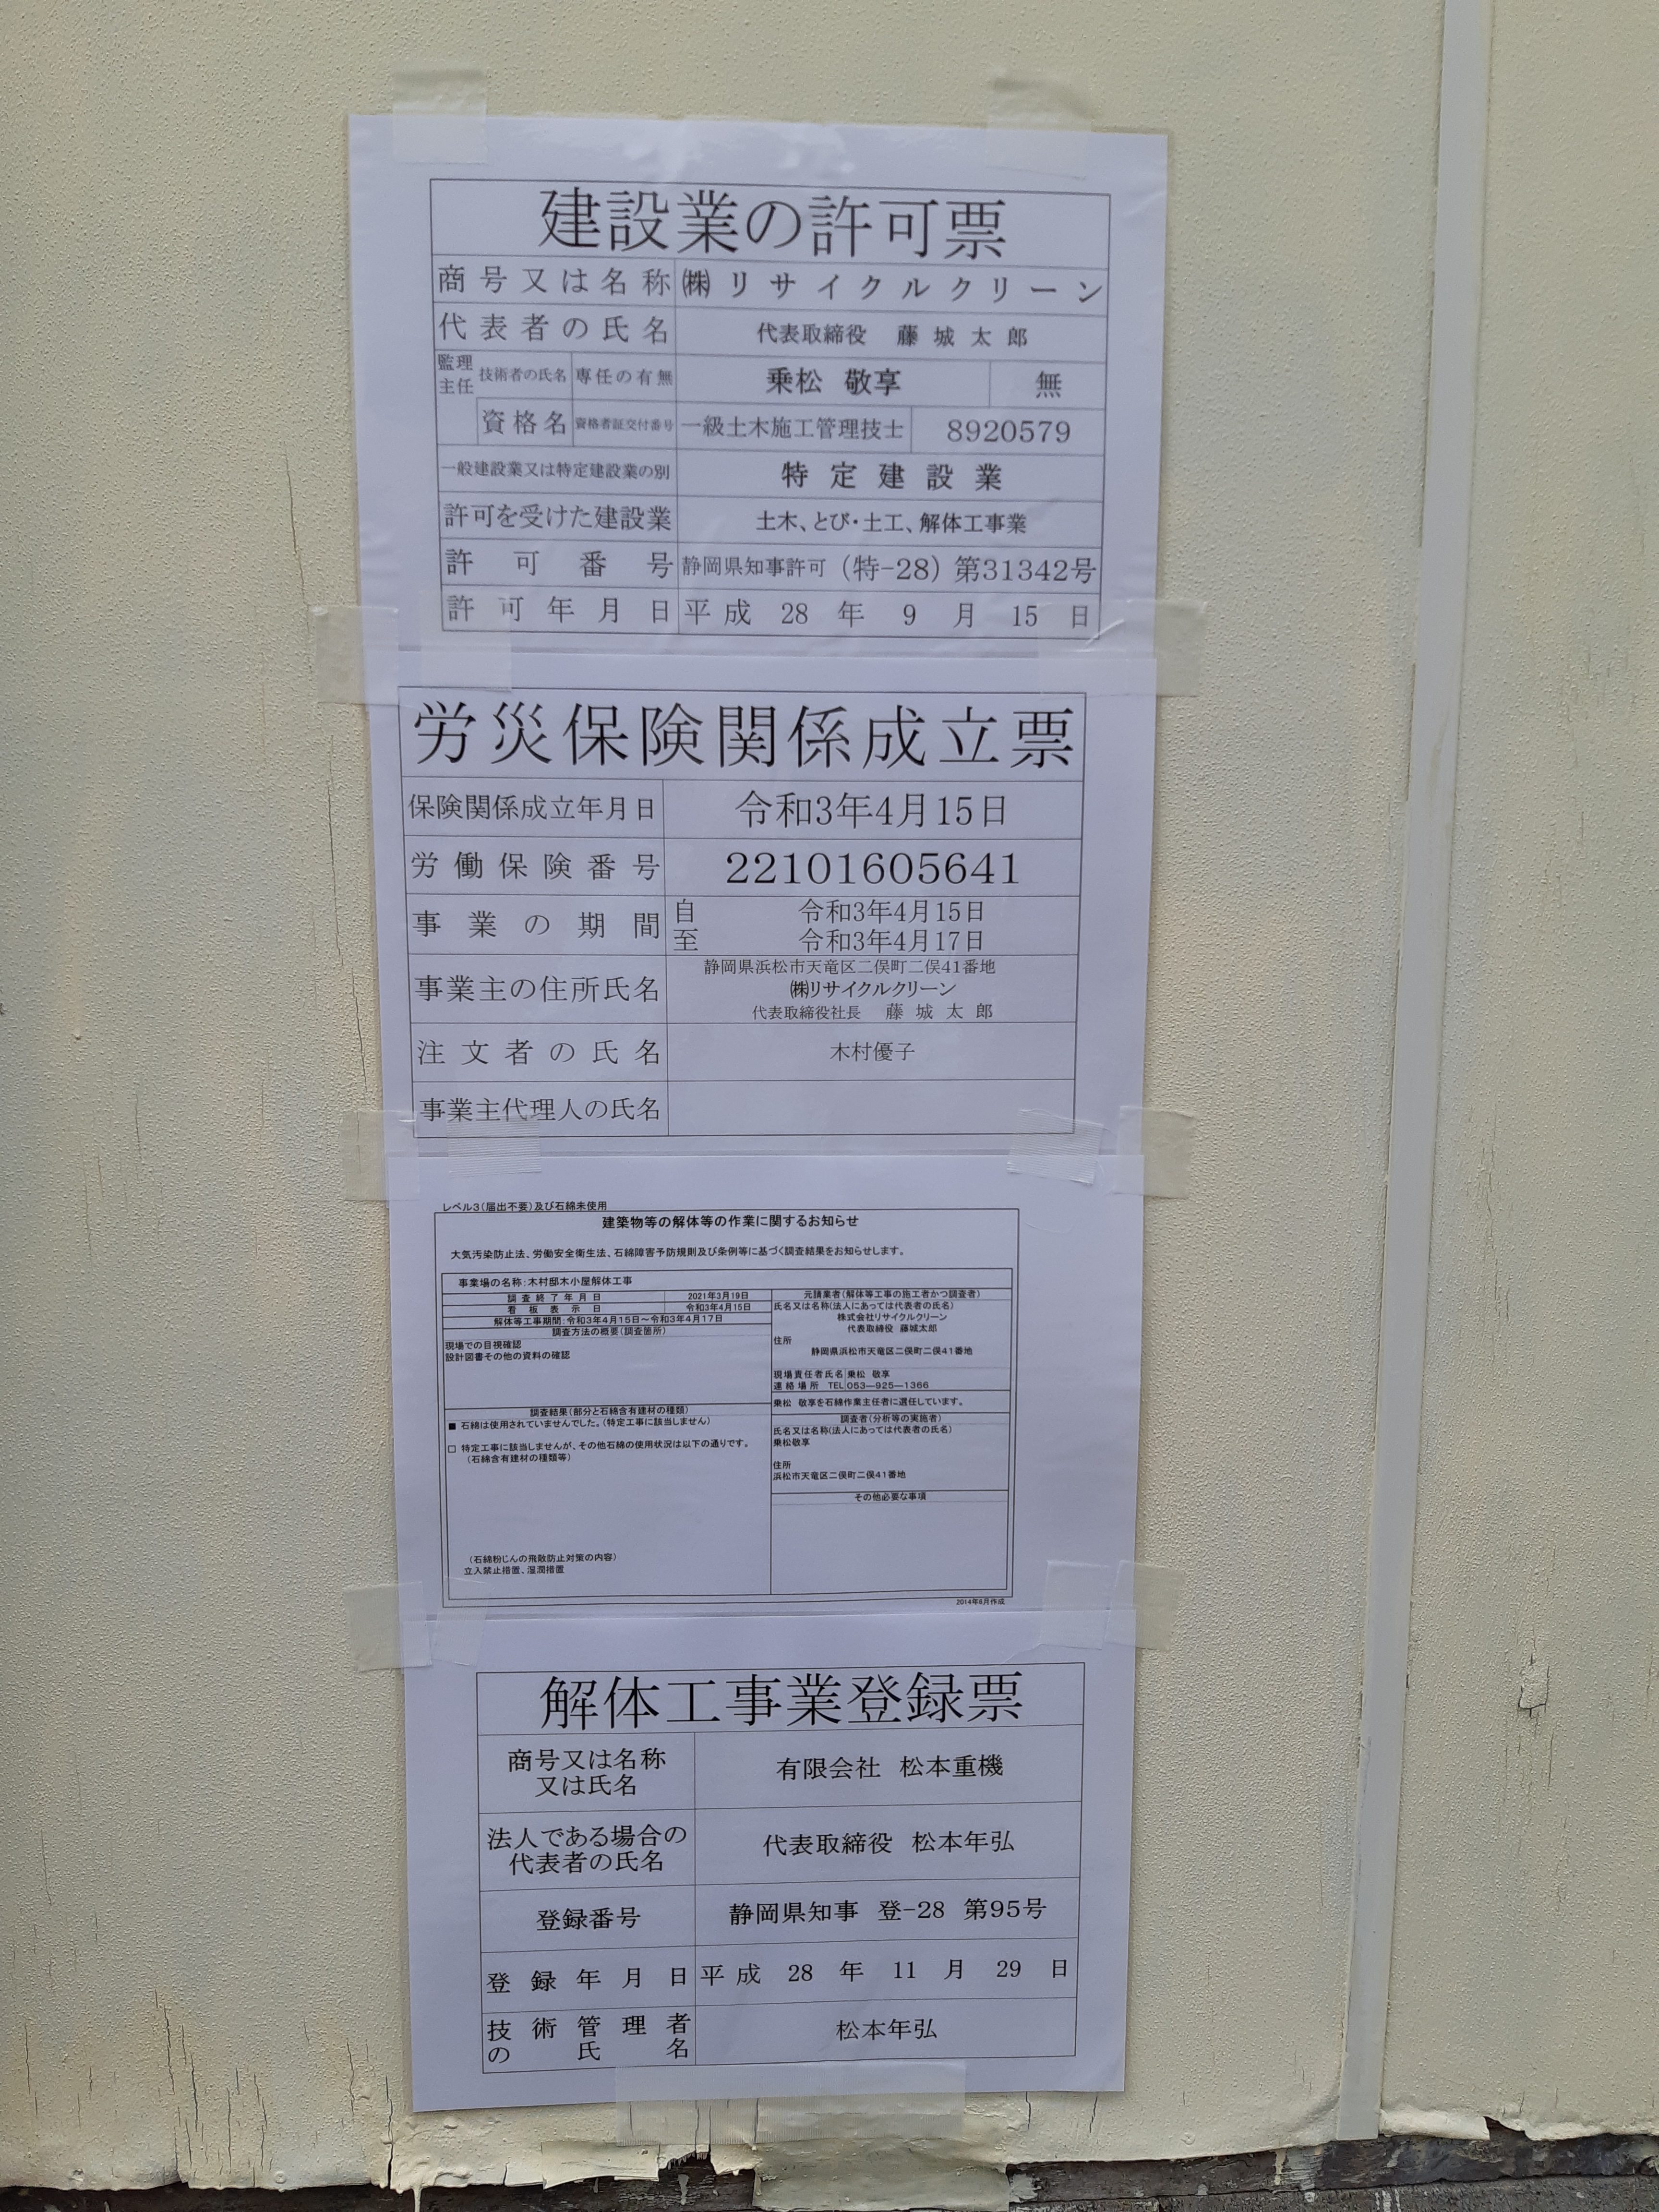 建設業の許可票
商号又は名称 ㈱リサイクルクリーン
代表者の氏名 代表取締役 藤城太郎
監理 主任 技術者の氏名 専任の有無 乗松 敬享 無
資格名 資格者証交付番号 一級土木施工管理技士 8920579
一般建設業又は特定建設業の別 特定建設業
許可を受けた建設業 土木、とび・土工、解体工事業
許可番号 静岡県知事許可 (特-28) 第31342号
許可年月日 平成 28 年 9 月 15 日
労災保険関係成立票
保険関係成立年月日 令和3年4月15日
労働保険番号 22101605641
事業の期間 自 令和3年4月15日
至 令和3年4月17日
事業主の住所氏名 静岡県浜松市天竜区二俣町二俣41番地
㈱リサイクルクリーン
代表取締役社長 藤城太郎
注文者の氏名 木村優子
事業主代理人の氏名
レベル3(届出不要)及び石綿未使用
建築物等の解体等の作業に関するお知らせ
大気汚染防止法、労働安全衛生法、石綿障害予防規則及び条例等に基づく調査結果をお知らせします。
事業場の名称:木村邸木小屋解体工事
調査終了年月日 2021年3月19日
看板表示日 令和3年4月15日
解体等工事期間:令和3年4月15日~令和3年4月17日
調査方法の概要(調査箇所)
現場での目視確認
設計図書その他の資料の確認
調査結果(部分と石綿含有建材の種類)
■ 石綿は使用されていませんでした。(特定工事に該当しません)
□ 特定工事に該当しませんが、その他石綿の使用状況は以下の通りです。
(石綿含有建材の種類等)
(石綿粉じんの飛散防止対策の内容)
立入禁止措置、湿潤措置
元請業者(解体等工事の施工者かつ調査者)
氏名又は名称(法人にあっては代表者の氏名)
株式会社リサイクルクリーン
代表取締役 藤城太郎
住所
静岡県浜松市天竜区二俣町二俣41番地
現場責任者氏名 乗松 敬享
連絡場所 TEL 053-925-1366
乗松 敬享を石綿作業主任者に選任しています。
調査者(分析等の実施者)
氏名又は名称(法人にあっては代表者の氏名)
乗松敬享
住所
浜松市天竜区二俣町二俣41番地
その他必要な事項
2014年6月作成
解体工事業登録票
商号又は名称
又は氏名 有限会社 松本重機
法人である場合の
代表者の氏名 代表取締役 松本年弘
登録番号 静岡県知事 登-28 第95号
登録年月日 平成 28 年 11 月 29 日
技術管理者
の氏名 松本年弘